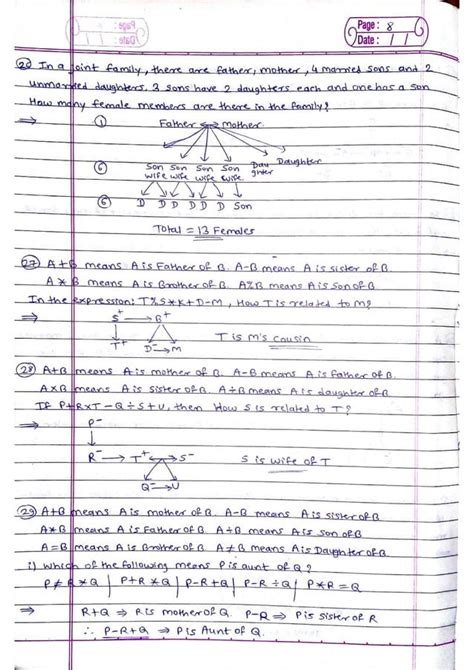 Page: 8
Date: / /
26 In a joint family, there are father, mother, 4 married sons and 2
unmarried daughters. 3 sons have 2 daughters each and one has a son
How many female members are there in the family?
⇒ ① Father ↔ Mother.
⑥ Son Son Son Son Dau Daughter
wife wife wife wife ghter
⑥ D D D D D D Son
Total = 13 Females
27 A+B means A is Father of B. A-B means A is sister of B.
A * B means A is Brother of B. A%B means A is Son of B
In the expression: T%S*K+D-M, How T is related to M?
⇒ S⁺ → B⁺
T⁺ D⁻ → M T is M's cousin
28 A+B means A is mother of B. A-B means A is father of B.
A×B means A is sister of B. A÷B means A is daughter of B
If P+R×T-Q÷S+U, then How S is related to T?
⇒ P⁻
R⁻ → T⁺ ↔ S⁻ S is wife of T
Q⁻ → U
29 A+B means A is mother of B. A-B means A is sister of B
A*B means A is Father of B. A÷B means A is son of B
A=B means A is Brother of B. A≠B means A is Daughter of B.
i) Which of the following means P is aunt of Q?
P≠R*Q | P+R*Q | P-R+Q | P-R÷Q | P*R=Q
⇒ R+Q ⇒ R is mother of Q. P-R ⇒ P is sister of R
∴ P-R+Q ⇒ P is Aunt of Q.